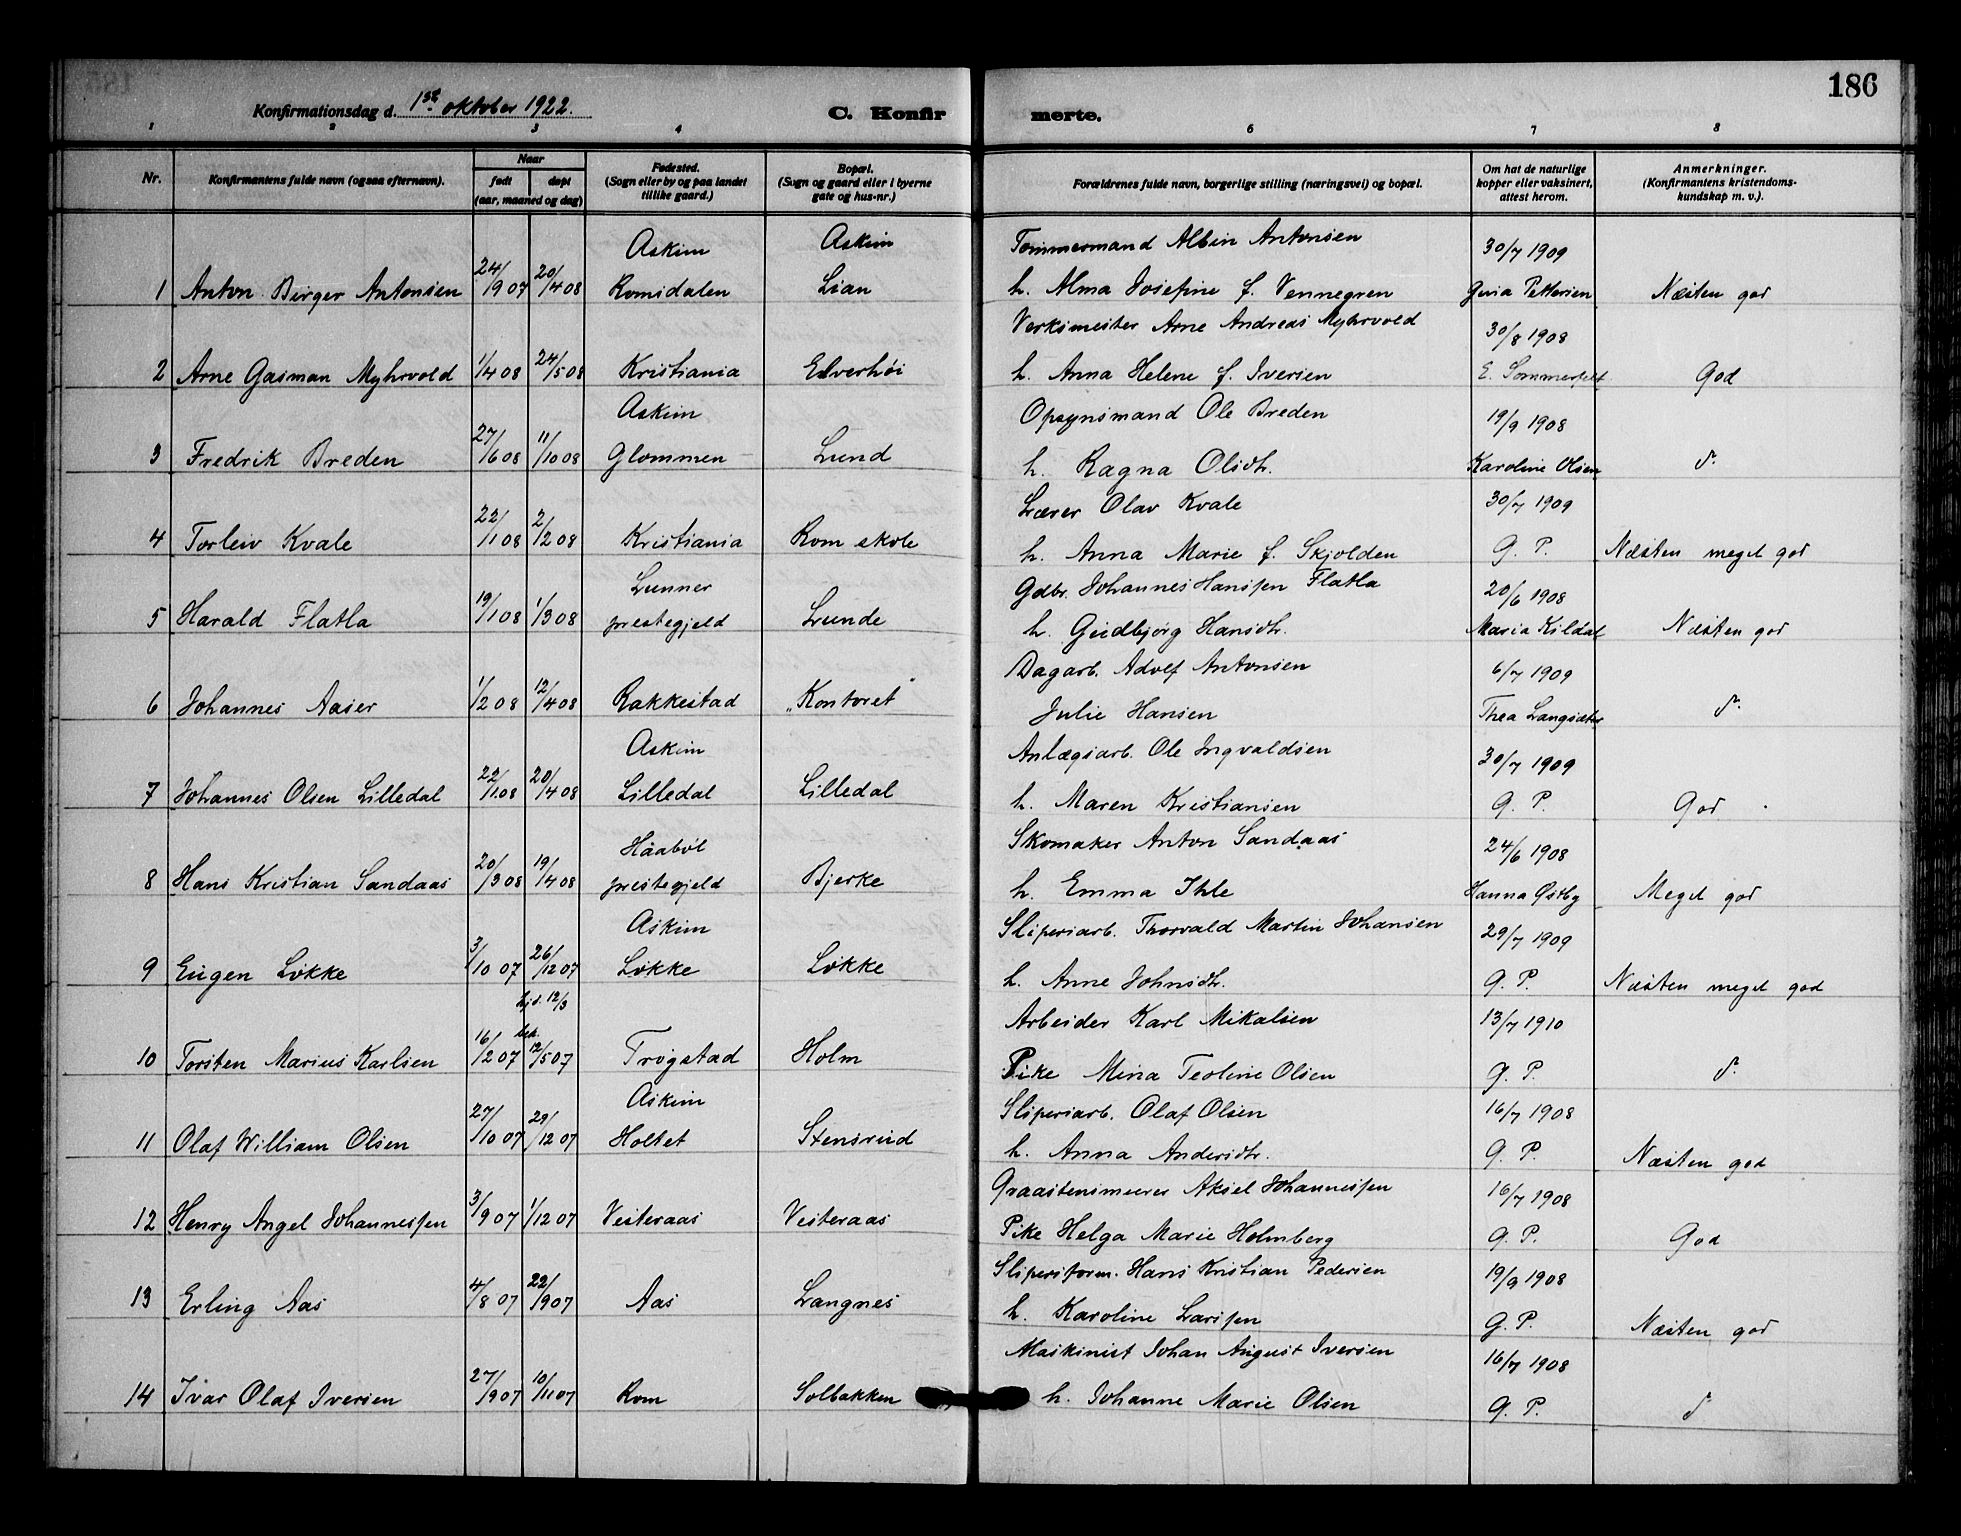 186
Konfirmationsdag d. 1ste oktober 1922.
C. Konfirmerte.
1 2 3 4 6 7 8
Nr.
Konfirmantens fulde navn (ogsaa efternavn).
Naar
født
døpt
(aar, maaned og dag)
Fødested.
(Sogn eller by og paa landet
tillike gaard.)
Bopæl.
(Sogn og gaard eller i byerne
gate og hus-nr.)
Forældrenes fulde navn, borgerlige stilling (næringsvei) og bopæl.
Om hat de naturlige
kopper eller vaksinert,
attest herom.
Anmerkninger.
(Konfirmantens kristendoms-
kundskap m. v.).
Askim Askim Tømmermand Albin Antonsen 30/7 1909
1 Anton Birger Antonsen 24/9 07 20/4 08 Romsdalen Lian h. Alma Josefine f. Vennegren Gina Pettersen Næsten god
Verksmester Arne Andreas Myhrvold 30/8 1908
2 Arne Gasman Myhrvold 1/4 08 24/5 08 Kristiania Elverhøi h. Anna Helene f. Iversen E. Sommerfelt God
Askim Opsynsmand Ole Breden 19/9 1908
3 Fredrik Breden 27/6 08 11/10 08 Glommen Lund h. Ragna Olsdtr. Karoline Olsen d.
Lærer Olav Kvale 30/7 1909
4 Torleiv Kvale 22/1 08 2/2 08 Kristiania Rom skole h. Anna Marie f. Skjolden G. P. Næsten meget god
Lunner Gdbr. Johannes Hanssen Flatla 20/6 1908
5 Harald Flatla 19/1 08 1/3 08 prestegjeld Lunde h. Gudbjørg Hansdtr. Maria Kildal Næsten god
Dagarb. Adolf Antonsen 6/7 1909
6 Johannes Aaser 1/2 08 12/4 08 Rakkestad "Kontoret" Julie Hansen Thea Langsæter d.
Askim Anlægsarb. Ole Ingvaldsen 30/7 1909
7 Johannes Olsen Lilledal 22/1 08 20/4 08 Lilledal Lilledal h. Maren Kristiansen G. P. God
Haabøl Skomaker Anton Sandaas 24/6 1908
8 Hans Kristian Sandaas 20/3 08 19/4 08 prestegjeld Bjerke h. Emma Ihle Hanna Østby Meget god
Askim Sliperiarb. Thorvald Martin Johansen 29/7 1909
9 Eugen Løkke 3/10 07 26/12 07 Løkke Løkke h. Anne Johnsdtr. G. P. Næsten meget god
hjd. 12/3 Arbeider Karl Mikalsen 13/7 1910
10 Torsten Marius Karlsen 16/2 07 bek. 12/5 07 Trøgstad Holm Pike Mina Teoline Olsen G. P. d.
Askim Sliperiarb. Olaf Olsen 16/7 1908
11 Olaf William Olsen 27/10 07 29/12 07 Holtet Stensrud h. Anna Andersdtr. G. P. Næsten god
Graastensmurer Aksel Johannessen 16/7 1908
12 Henry Angel Johannessen 3/9 07 1/12 07 Vesteraas Vesteraas Pike Helga Marie Holmberg G. P. God
Sliperiform. Hans Kristian Pedersen 19/9 1908
13 Erling Aas 4/8 07 22/9 07 Aas Langnes h. Karoline Larssen G. P. Næsten god
Maskinist Johan August Iversen 16/7 1908
14 Ivar Olaf Iversen 27/9 07 10/11 07 Rom Solbakken h. Johanne Marie Olsen G. P. d